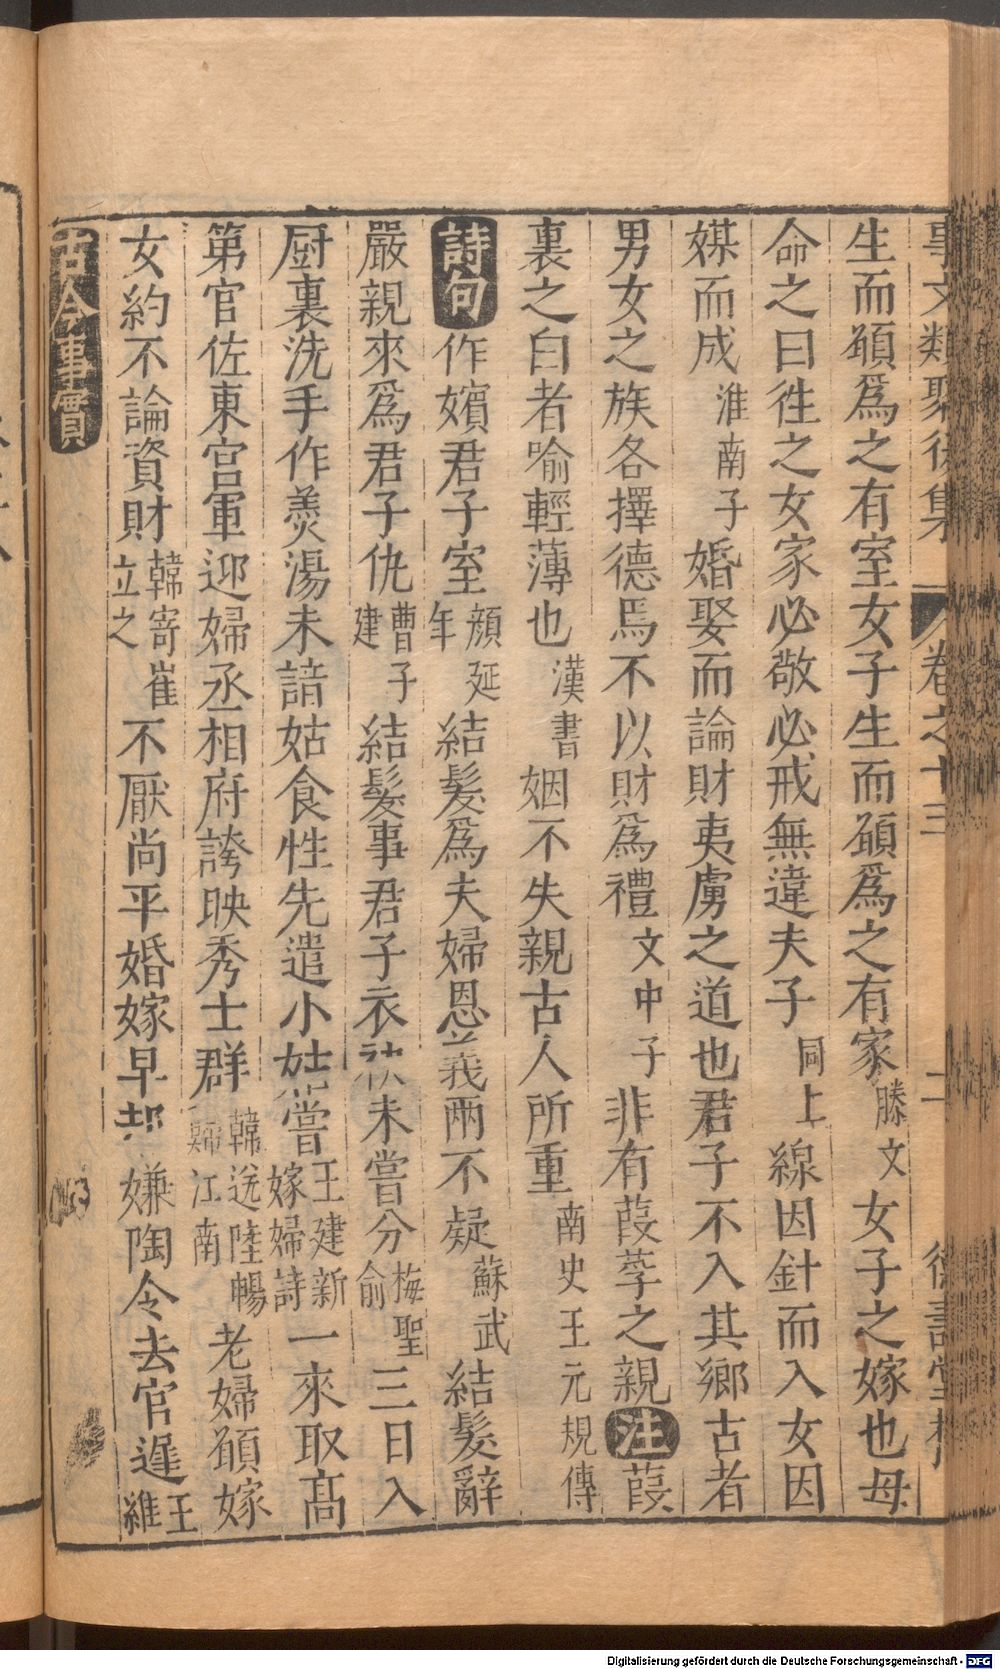 事文類聚後集 卷之十三 二 德壽堂梓
生而願爲之有室女子生而願爲之有家滕文女子之嫁也母
命之曰徃之女家必敬必戒無違夫子同上線因針而入女因
媒而成淮南子婚娶而論財夷虜之道也君子不入其鄉古者
男女之族各擇德焉不以財爲禮文中子非有葭莩之親注葭
裏之白者喻輕薄也漢書姻不失親古人所重南史王元規傳
詩句作嬪君子室顏延年結髮爲夫婦恩義兩不疑蘇武結髮辭
嚴親來爲君子仇曹子建結髮事君子衣袂未嘗分梅聖俞三日入
厨裏洗手作羹湯未諳姑食性先遣小姑嘗王建新嫁婦詩一來取高
第官佐東宫軍迎婦丞相府誇映秀士群韓送陸暢歸江南老婦願嫁
女約不論資財韓寄崔立之不厭尚平婚嫁早却嫌陶令去官遲王維
古今事實
Digitalisierung gefördert durch die Deutsche Forschungsgemeinschaft - DFG